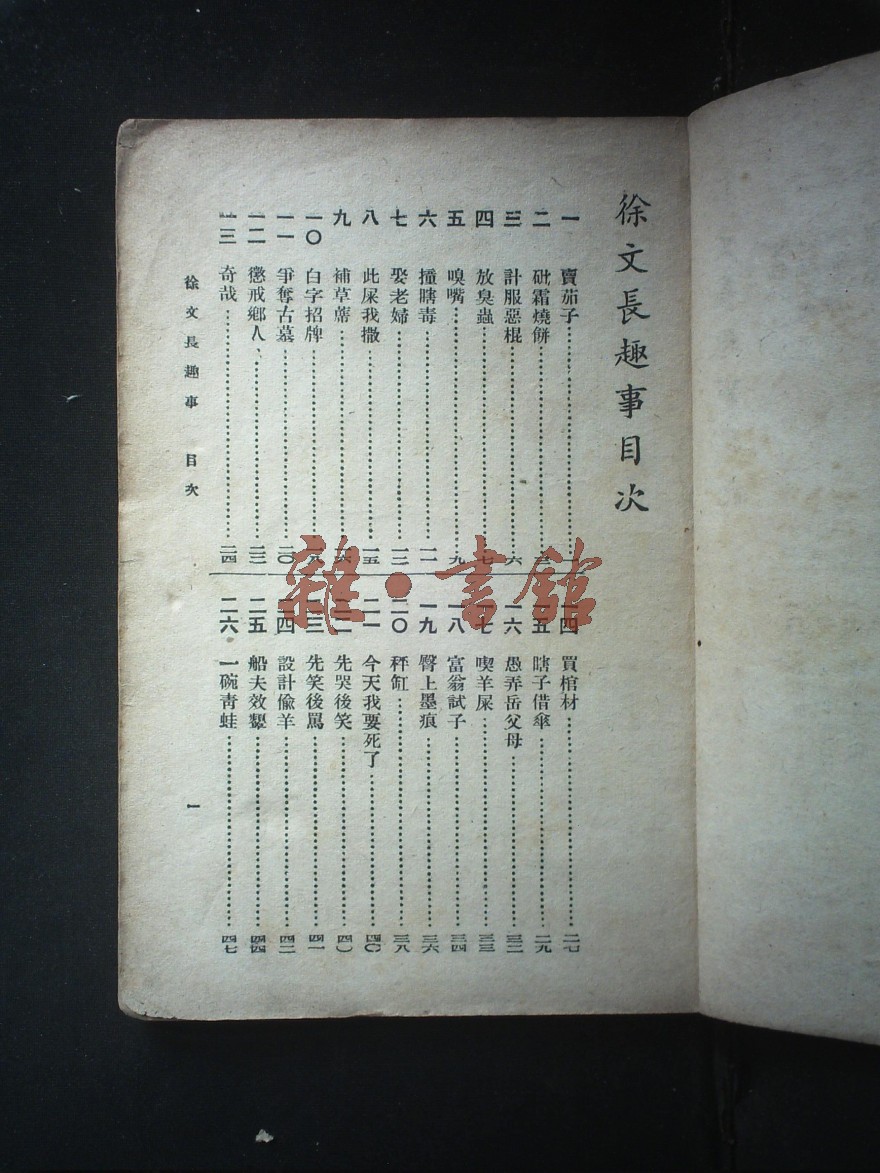 徐文長趣事目次
一 賣茄子 一
二 砒霜燒餅
三 計服惡棍 六
四 放臭蟲 七
五 嗅嘴 九
六 撞瞎毒 一一
七 娶老婦 一二
八 此屎我撒 一五
九 補草蓆
一〇 白字招牌 一九
一一 爭奪古墓 二〇
一二 懲戒鄉人 二三
一三 奇哉 二四
一四 買棺材 二七
一五 瞎子借傘 二九
一六 愚弄岳父母 三二
一七 喫羊屎 三三
一八 富翁試子 三四
一九 臀上墨痕 三六
二〇 秤缸 三八
二一 今天我要死了 四〇
二二 先哭後笑 四〇
二三 先笑後罵 四一
二四 設計偷羊 四二
二五 船夫效顰 四四
二六 一碗青蛙 四七
徐文長趣事 目次 一
雜·書館